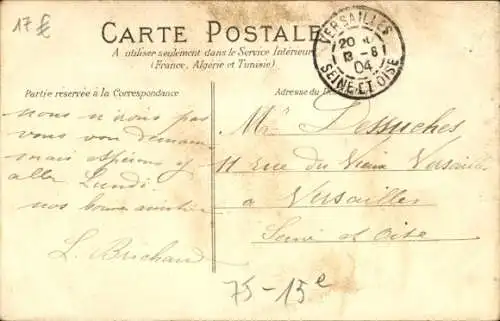 17 €
CARTE POSTALE
A utiliser seulement dans le Service Intérieur
(France, Algérie et Tunisie)
VERSAILLES
20
04
SEINE-ET-OISE
Partie réservée à la Correspondance
Adresse du
nous n'irons pas
vous voir demain
mais espérons y
aller Lundi
nos bonnes amitiés
L. Brichard
Mr Dessuches
11 rue du Vieux Versailles
à Versailles
Seine et Oise
75-15e